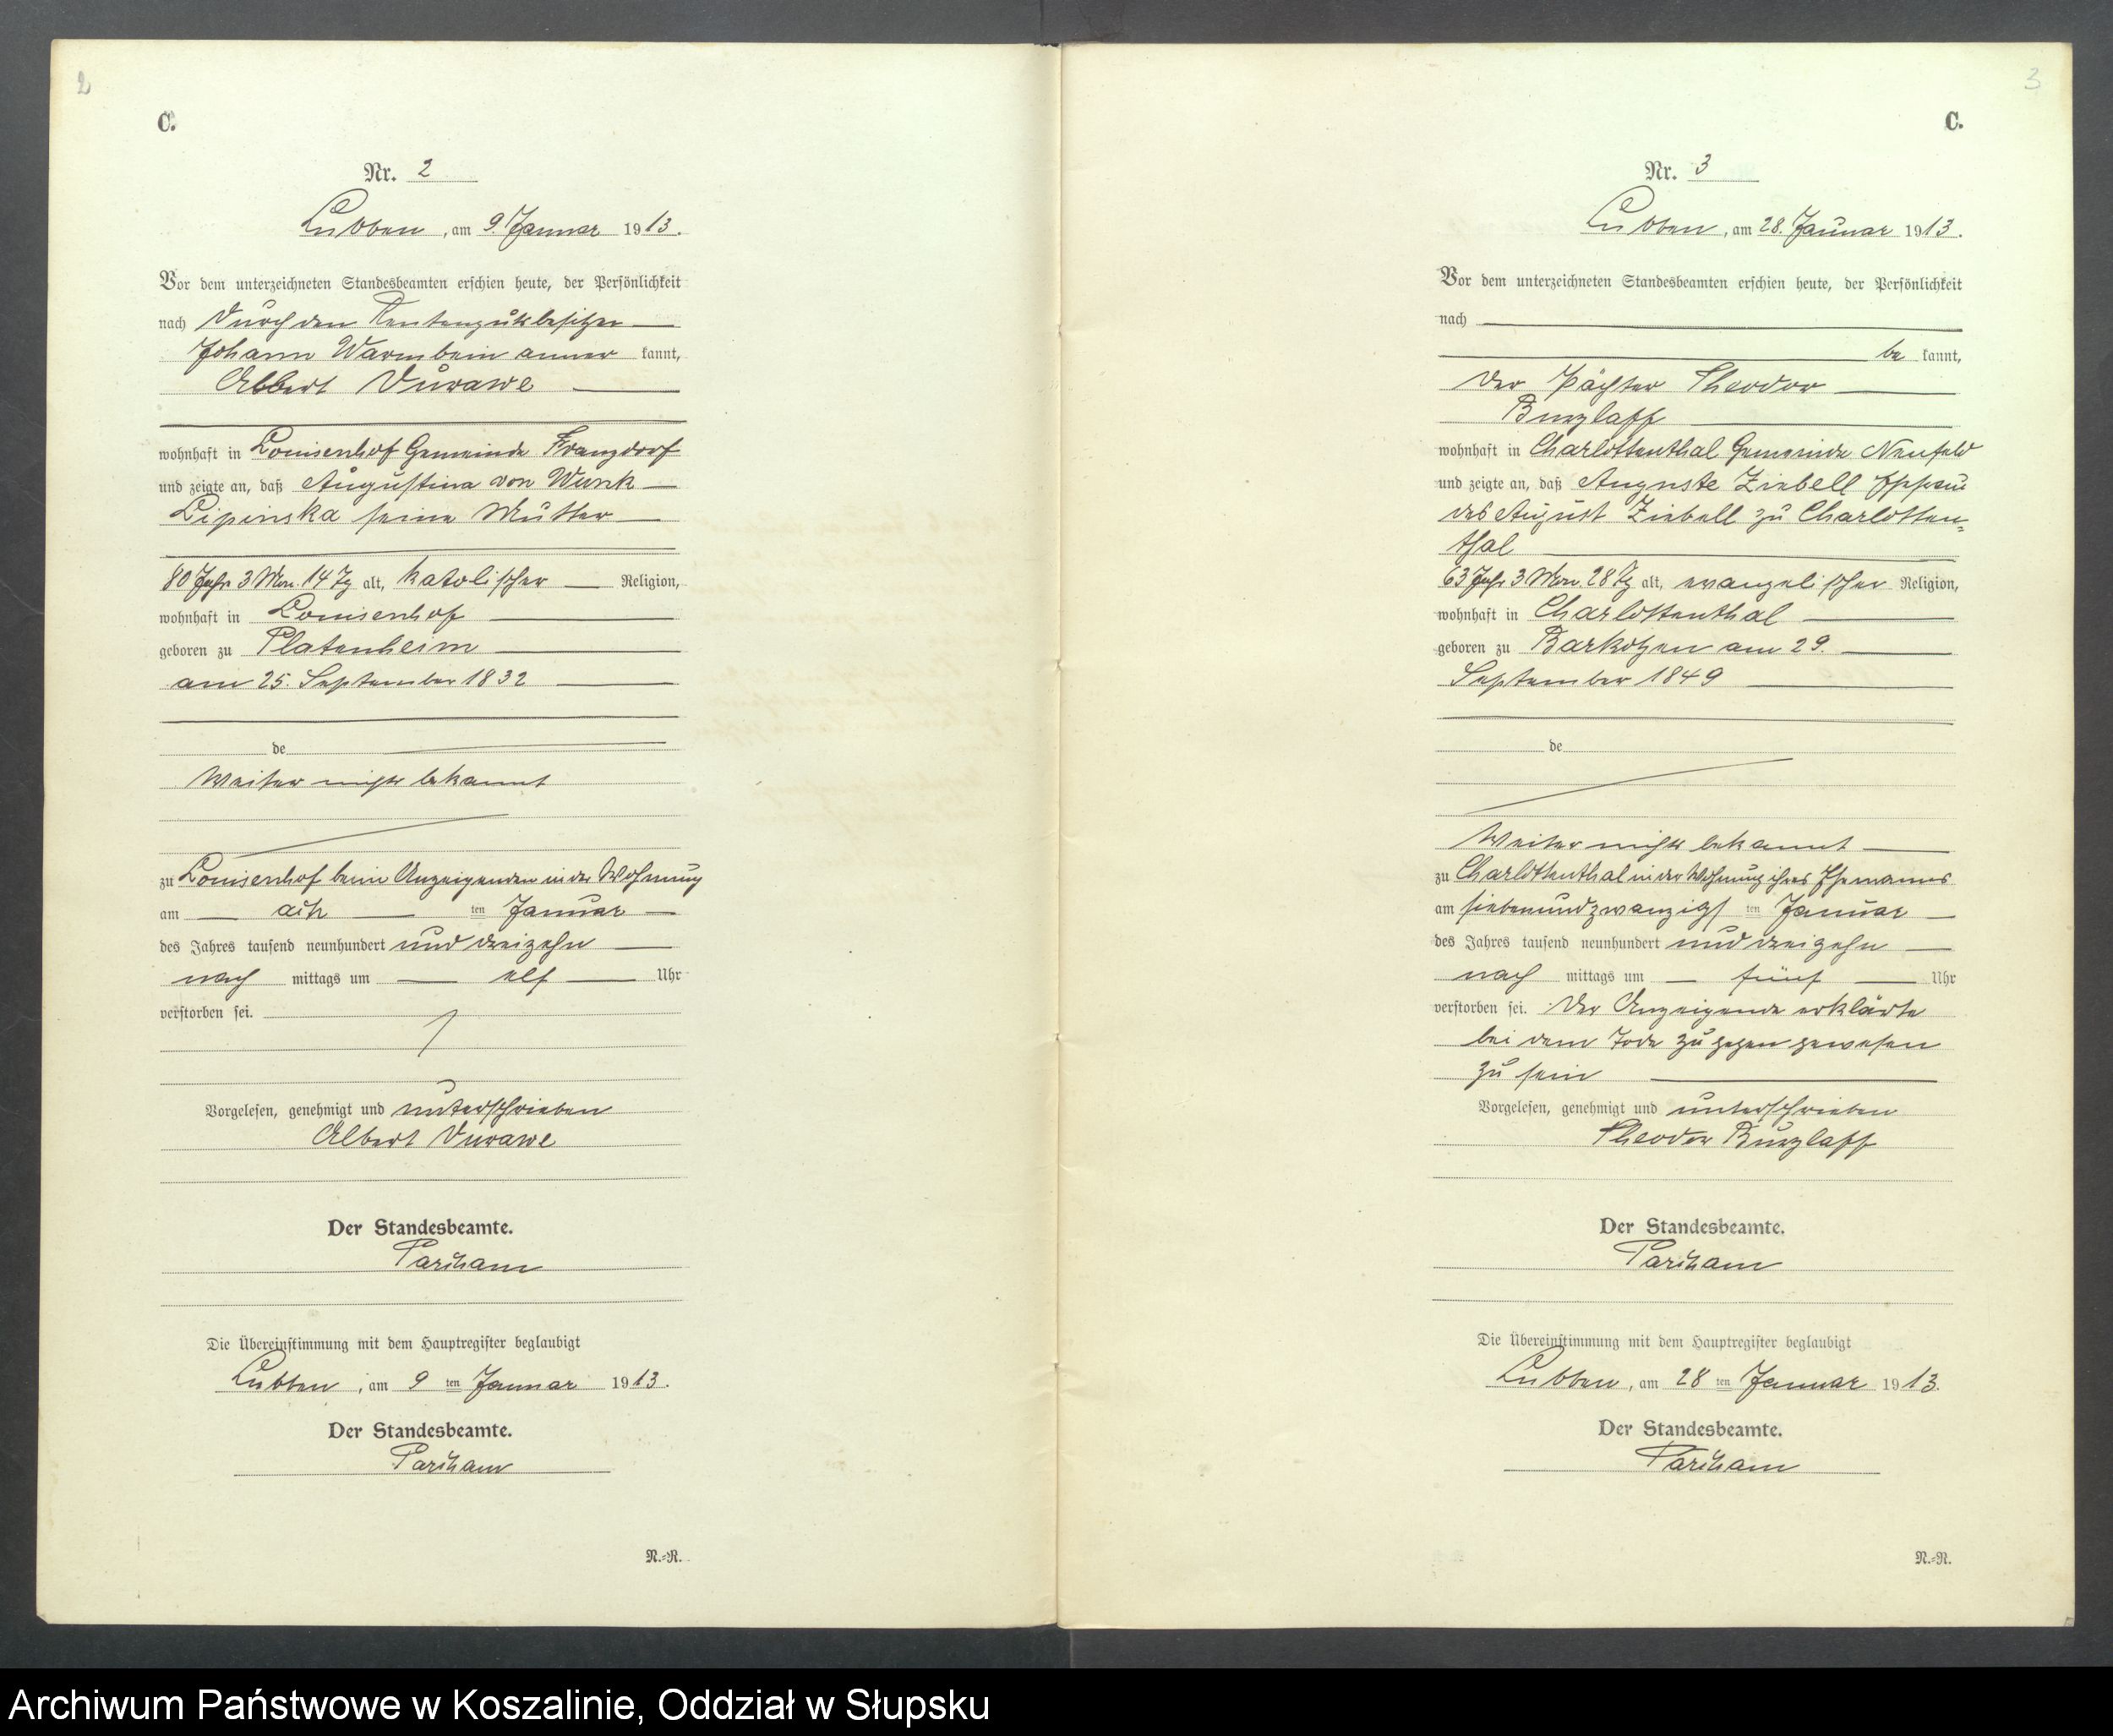 2
C.
Nr. 2
Lubben, am 9. Januar 1913.
Vor dem unterzeichneten Standesbeamten erschien heute, der Persönlichkeit
nach durch den Rentengutsbesitzer
Johann Warmbein aner kannt,
Albert Durawe
wohnhaft in Louisenhof Gemeinde Franzdorf
und zeigte an, daß Augustina von Wnuk
Lipinska seine Mutter
80 Jahr 3 Mon. 14 Tg alt, katolischer Religion,
wohnhaft in Louisenhof
geboren zu Platenheim
am 25. September 1832
de
Weiter nicht bekannt
zu Louisenhof beim Anzeigenden in der Wohnung
am ach ten Januar
des Jahres tausend neunhundert und dreizehn
nach mittags um elf Uhr
verstorben sei.
Vorgelesen, genehmigt und unterschrieben
Albert Durawe
Der Standesbeamte.
Die Übereinstimmung mit dem Hauptregister beglaubigt
Lubben, am 9 ten Januar 1913.
Der Standesbeamte.
N.=R.
3
C.
Nr. 3
Lubben, am 28. Januar 1913.
Vor dem unterzeichneten Standesbeamten erschien heute, der Persönlichkeit
nach
be kannt,
der Pächter Theodor
Burzlaff
wohnhaft in Charlottenthal Gemeinde Neufeld
und zeigte an, daß Auguste Ziebell Ehefrau
des August Ziebell zu Charlotten=
thal
63 Jahr 3 Mon. 28 Tg alt, evangelischer Religion,
wohnhaft in Charlottenthal
geboren zu Barkotzen am 29.
September 1849
de
Weiter nicht bekannt
zu Charlottenthal in der Wohnung ihres Ehemannes
am siebenundzwanzigs ten Januar
des Jahres tausend neunhundert und dreizehn
nach mittags um fünf Uhr
verstorben sei. Der Anzeigende erklärte
bei dem Tode zugegen gewesen
zu sein
Vorgelesen, genehmigt und unterschrieben
Theodor Burzlaff
Der Standesbeamte.
Die Übereinstimmung mit dem Hauptregister beglaubigt
Lubben, am 28 ten Januar 1913.
Der Standesbeamte.
N.=R.
Archiwum Państwowe w Koszalinie, Oddział w Słupsku